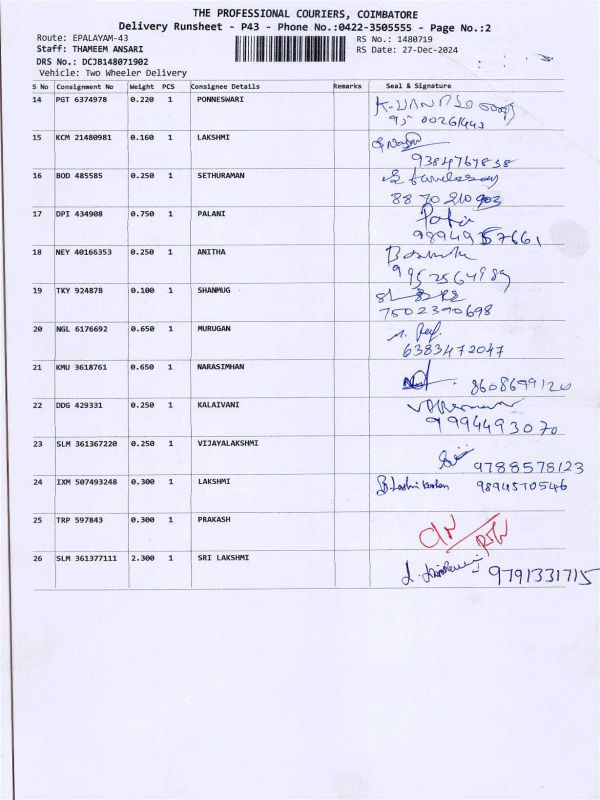 THE PROFESSIONAL COURIERS, COIMBATORE
Delivery Runsheet - P43 - Phone No.:0422-3505555 - Page No.:2
Route: EPALAYAM-43 RS No.: 1480719
Staff: THAMEEM ANSARI RS Date: 27-Dec-2024
DRS No.: DCJB148071902
Vehicle: Two Wheeler Delivery
S No Consignment No Weight PCS Consignee Details Remarks Seal & Signature
14 PGT 6374978 0.220 1 PONNESWARI
15 KCM 21480981 0.160 1 LAKSHMI
9384767838
16 BOD 485585 0.250 1 SETHURAMAN
8870210903
17 DPI 434908 0.750 1 PALANI
18 NEY 40166353 0.250 1 ANITHA
9952564989
19 TKY 924878 0.100 1 SHANMUG
7502390698
20 NGL 6176692 0.650 1 MURUGAN
6383472047
21 KMU 3618761 0.650 1 NARASIMHAN
8608699120
22 DDG 429331 0.250 1 KALAIVANI
9994493070
23 SLM 361367220 0.250 1 VIJAYALAKSHMI
9788578123
24 IXM 507493248 0.300 1 LAKSHMI
9894570546
25 TRP 597843 0.300 1 PRAKASH
26 SLM 361377111 2.300 1 SRI LAKSHMI
9791331715